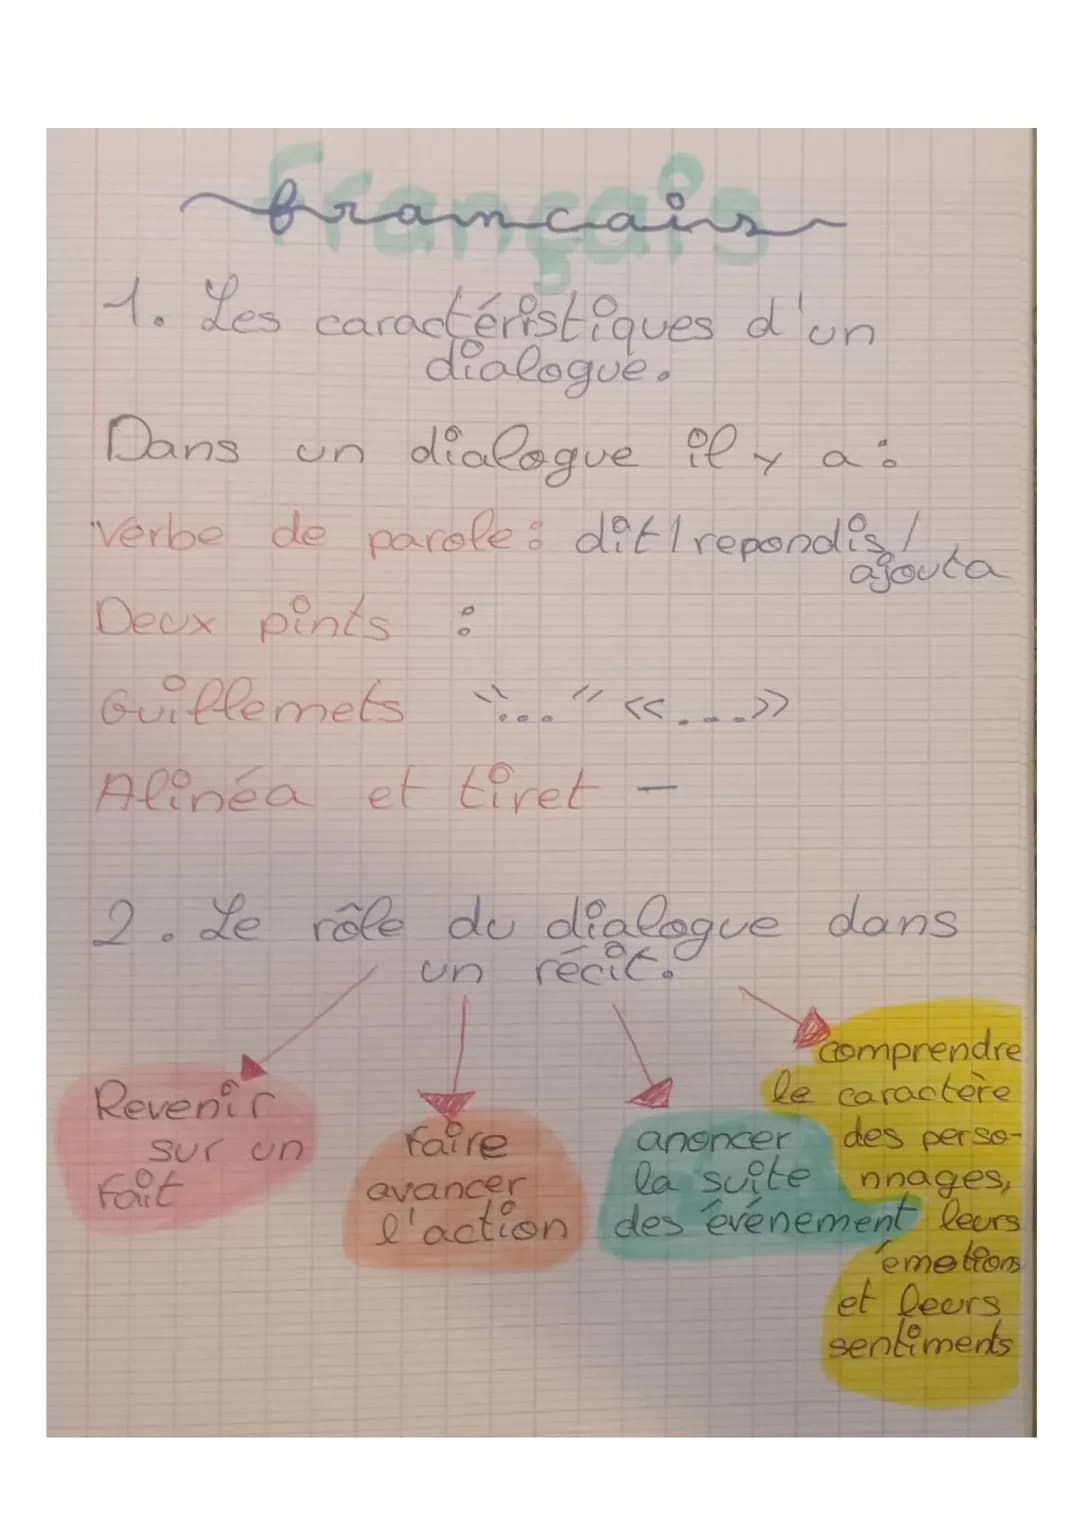 Français
français
1. Les caractéristiques d'un
dialogue.
Dans un dialogue il y a :
verbe de parole : dit/repondis/
ajouta
Deux pints :
Guillemets "..." <<....>>
Alinéa et tiret -
2. Le rôle du dialogue dans
un récit.
Revenir
sur un
fait
faire
avancer
l'action
anoncer
la suite
des événement
comprendre
le caractère
des perso-
nnages,
leurs
émotions
et leurs
sentiments